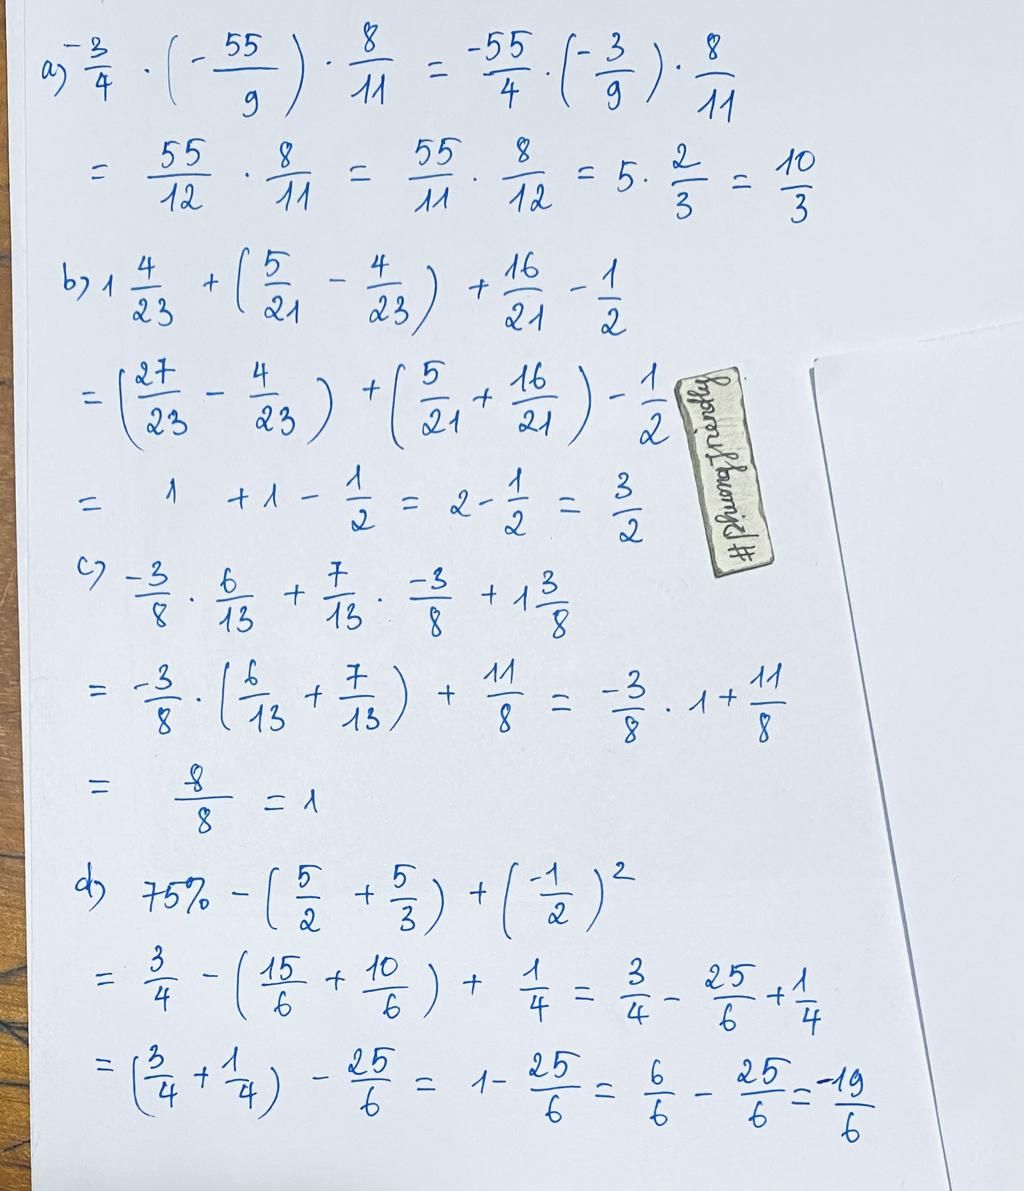 a) -3/4 . (- 55/9) . 8/11 = -55/4 . (- 3/9) . 8/11
= 55/12 . 8/11 = 55/11 . 8/12 = 5. 2/3 = 10/3
b) 1 4/23 + (5/21 - 4/23) + 16/21 - 1/2
= (27/23 - 4/23) + (5/21 + 16/21) - 1/2
= 1 + 1 - 1/2 = 2 - 1/2 = 3/2
#Phuongfriendly
c) -3/8 . 6/13 + 7/13 . -3/8 + 1 3/8
= -3/8 . (6/13 + 7/13) + 11/8 = -3/8 . 1 + 11/8
= 8/8 = 1
d) 75% - (5/2 + 5/3) + (-1/2)²
= 3/4 - (15/6 + 10/6) + 1/4 = 3/4 - 25/6 + 1/4
= (3/4 + 1/4) - 25/6 = 1 - 25/6 = 6/6 - 25/6 = -19/6